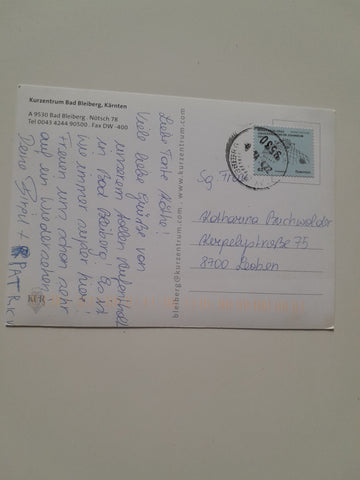 Kurzentrum Bad Bleiberg, Kärnten
A 9530 Bad Bleiberg · Nötsch 78
Tel 0043 4244 90500 . Fax DW -400
Liebe Tante Käthe!
Viele liebe Grüße von
unserem tollen Aufenthalt
in Bad Bleiberg! Es ist
wie immer super hier!
Freuen uns schon sehr
auf ein Wiedersehen
Deine +
PATRICK
bleiberg@kurzentrum.com · www.kurzentrum.com
9530
Sg. Frau
Katharina Buchwalder
Kerpelystraße 75
8700 Leoben
KUR